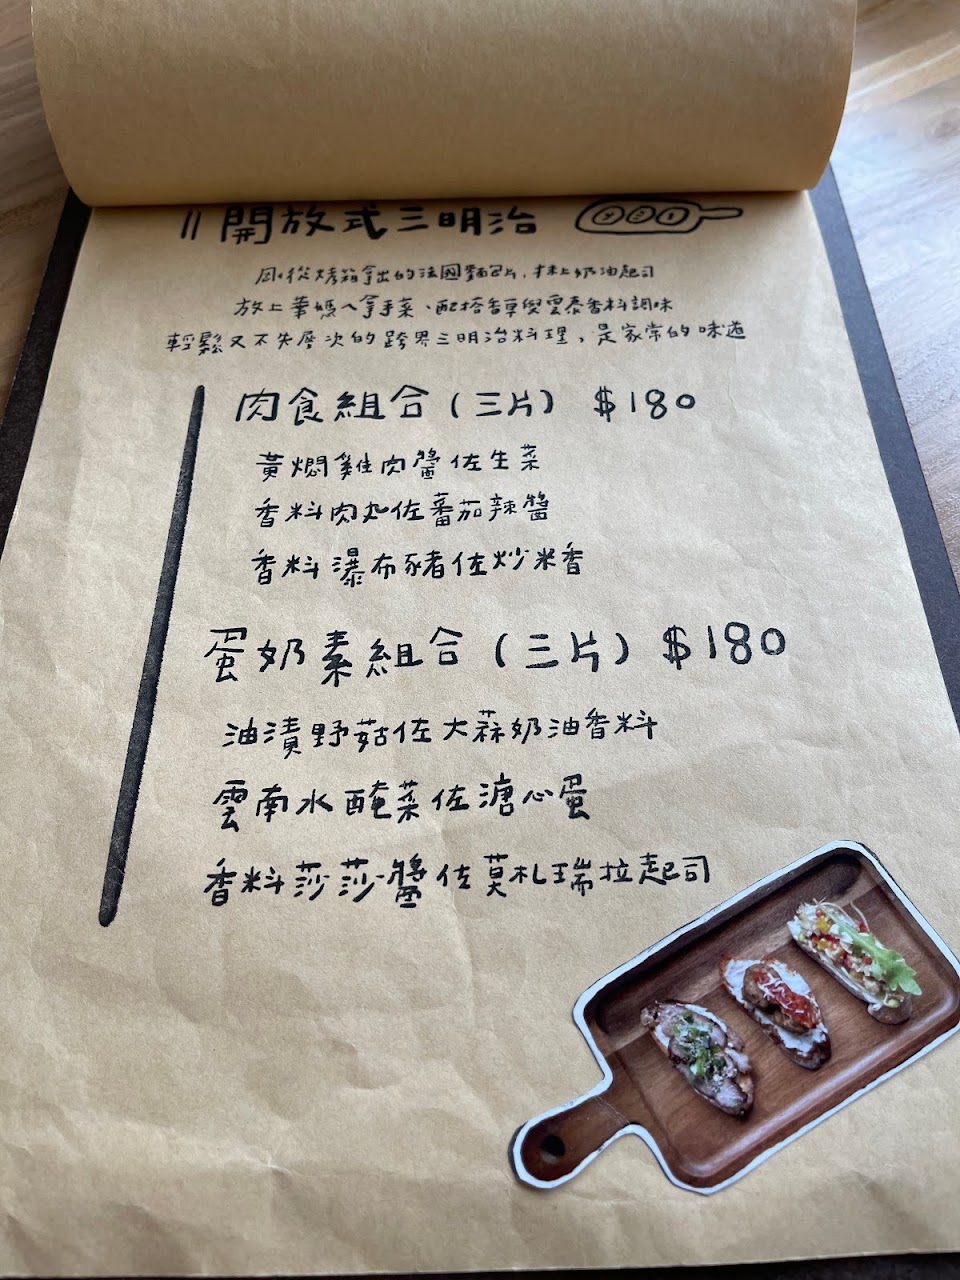 開放式三明治
剛從烤箱拿出的法國麵包片,抹上奶油起司
放上華媽ㄟ拿手菜、配搭香草與雲泰香料調味
輕鬆又不失層次的跨界三明治料理,是家常的味道
肉食組合(三片) $180
黃燜雞肉醬佐生菜
香料肉丸佐蕃茄辣醬
香料瀑布豬佐炒米香
蛋奶素組合(三片) $180
油漬野菇佐大蒜奶油香料
雲南水醃菜佐溏心蛋
香料莎莎醬佐莫札瑞拉起司